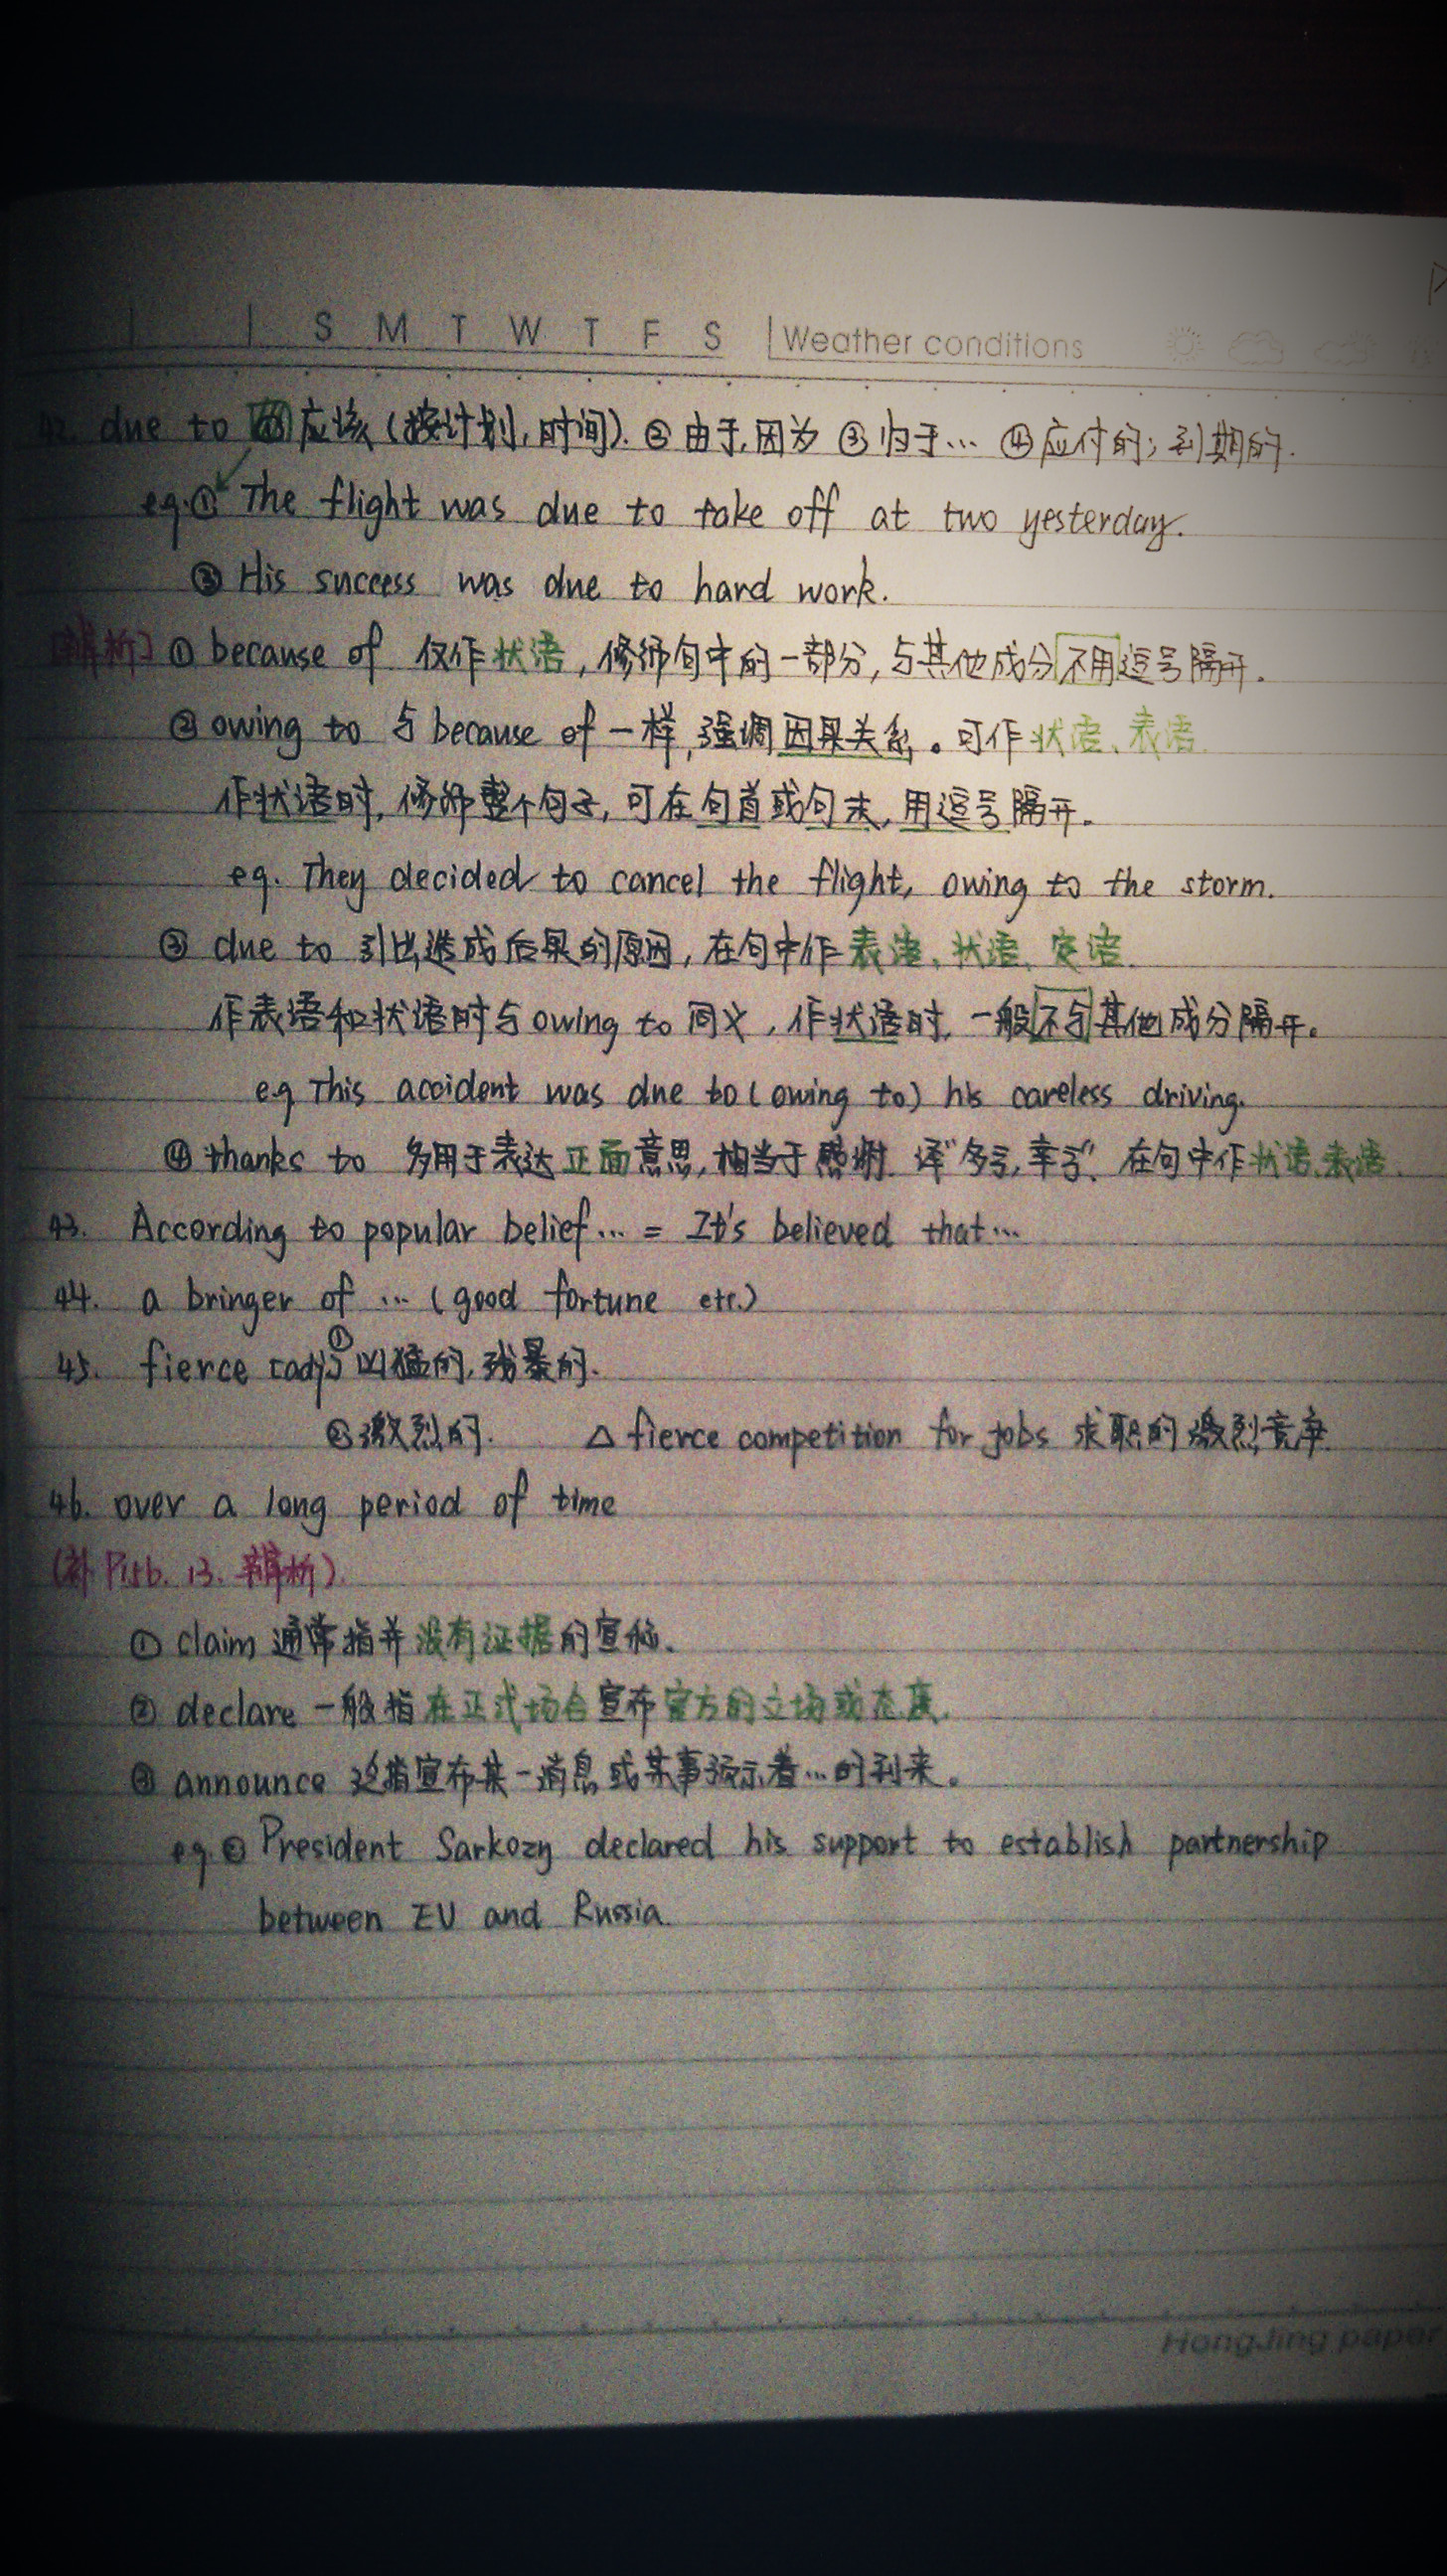 S M T W T F S Weather conditions
42. due to ①应该(按计划,时间). ②由于,因为 ③归于… ④应付的;到期的.
eg.① The flight was due to take off at two yesterday.
③ His success was due to hard work.
[辨析] ① because of 仅作状语,修饰句中的一部分,与其他成分不用逗号隔开.
② owing to 与because of 一样,强调因果关系。可作状语、表语
作状语时,修饰整个句子,可在句首或句末,用逗号隔开.
eg. They decided to cancel the flight, owing to the storm.
③ due to 引出造成后果的原因,在句中作表语、状语、定语.
作表语和状语时与owing to 同义,作状语时,一般不与其他成分隔开。
eg This accident was due to (owing to) his careless driving.
④ thanks to 多用于表达正面意思,相当于感谢 译"多亏,幸亏". 在句中作状语.表语.
43. According to popular belief… = It's believed that…
44. a bringer of … (good fortune etc.)
45. fierce (adj) ①凶猛的,残暴的.
②激烈的. △ fierce competition for jobs 求职的激烈竞争
46. over a long period of time
(补 P156. 13. 辨析).
① claim 通常指并没有证据的宣称.
② declare 一般指在正式场合宣布官方的立场或态度.
③ announce 这指宣布某一消息或某事预示着…的到来。
eg.② President Sarkozy declared his support to establish partnership
between EU and Russia.
HongJing paper